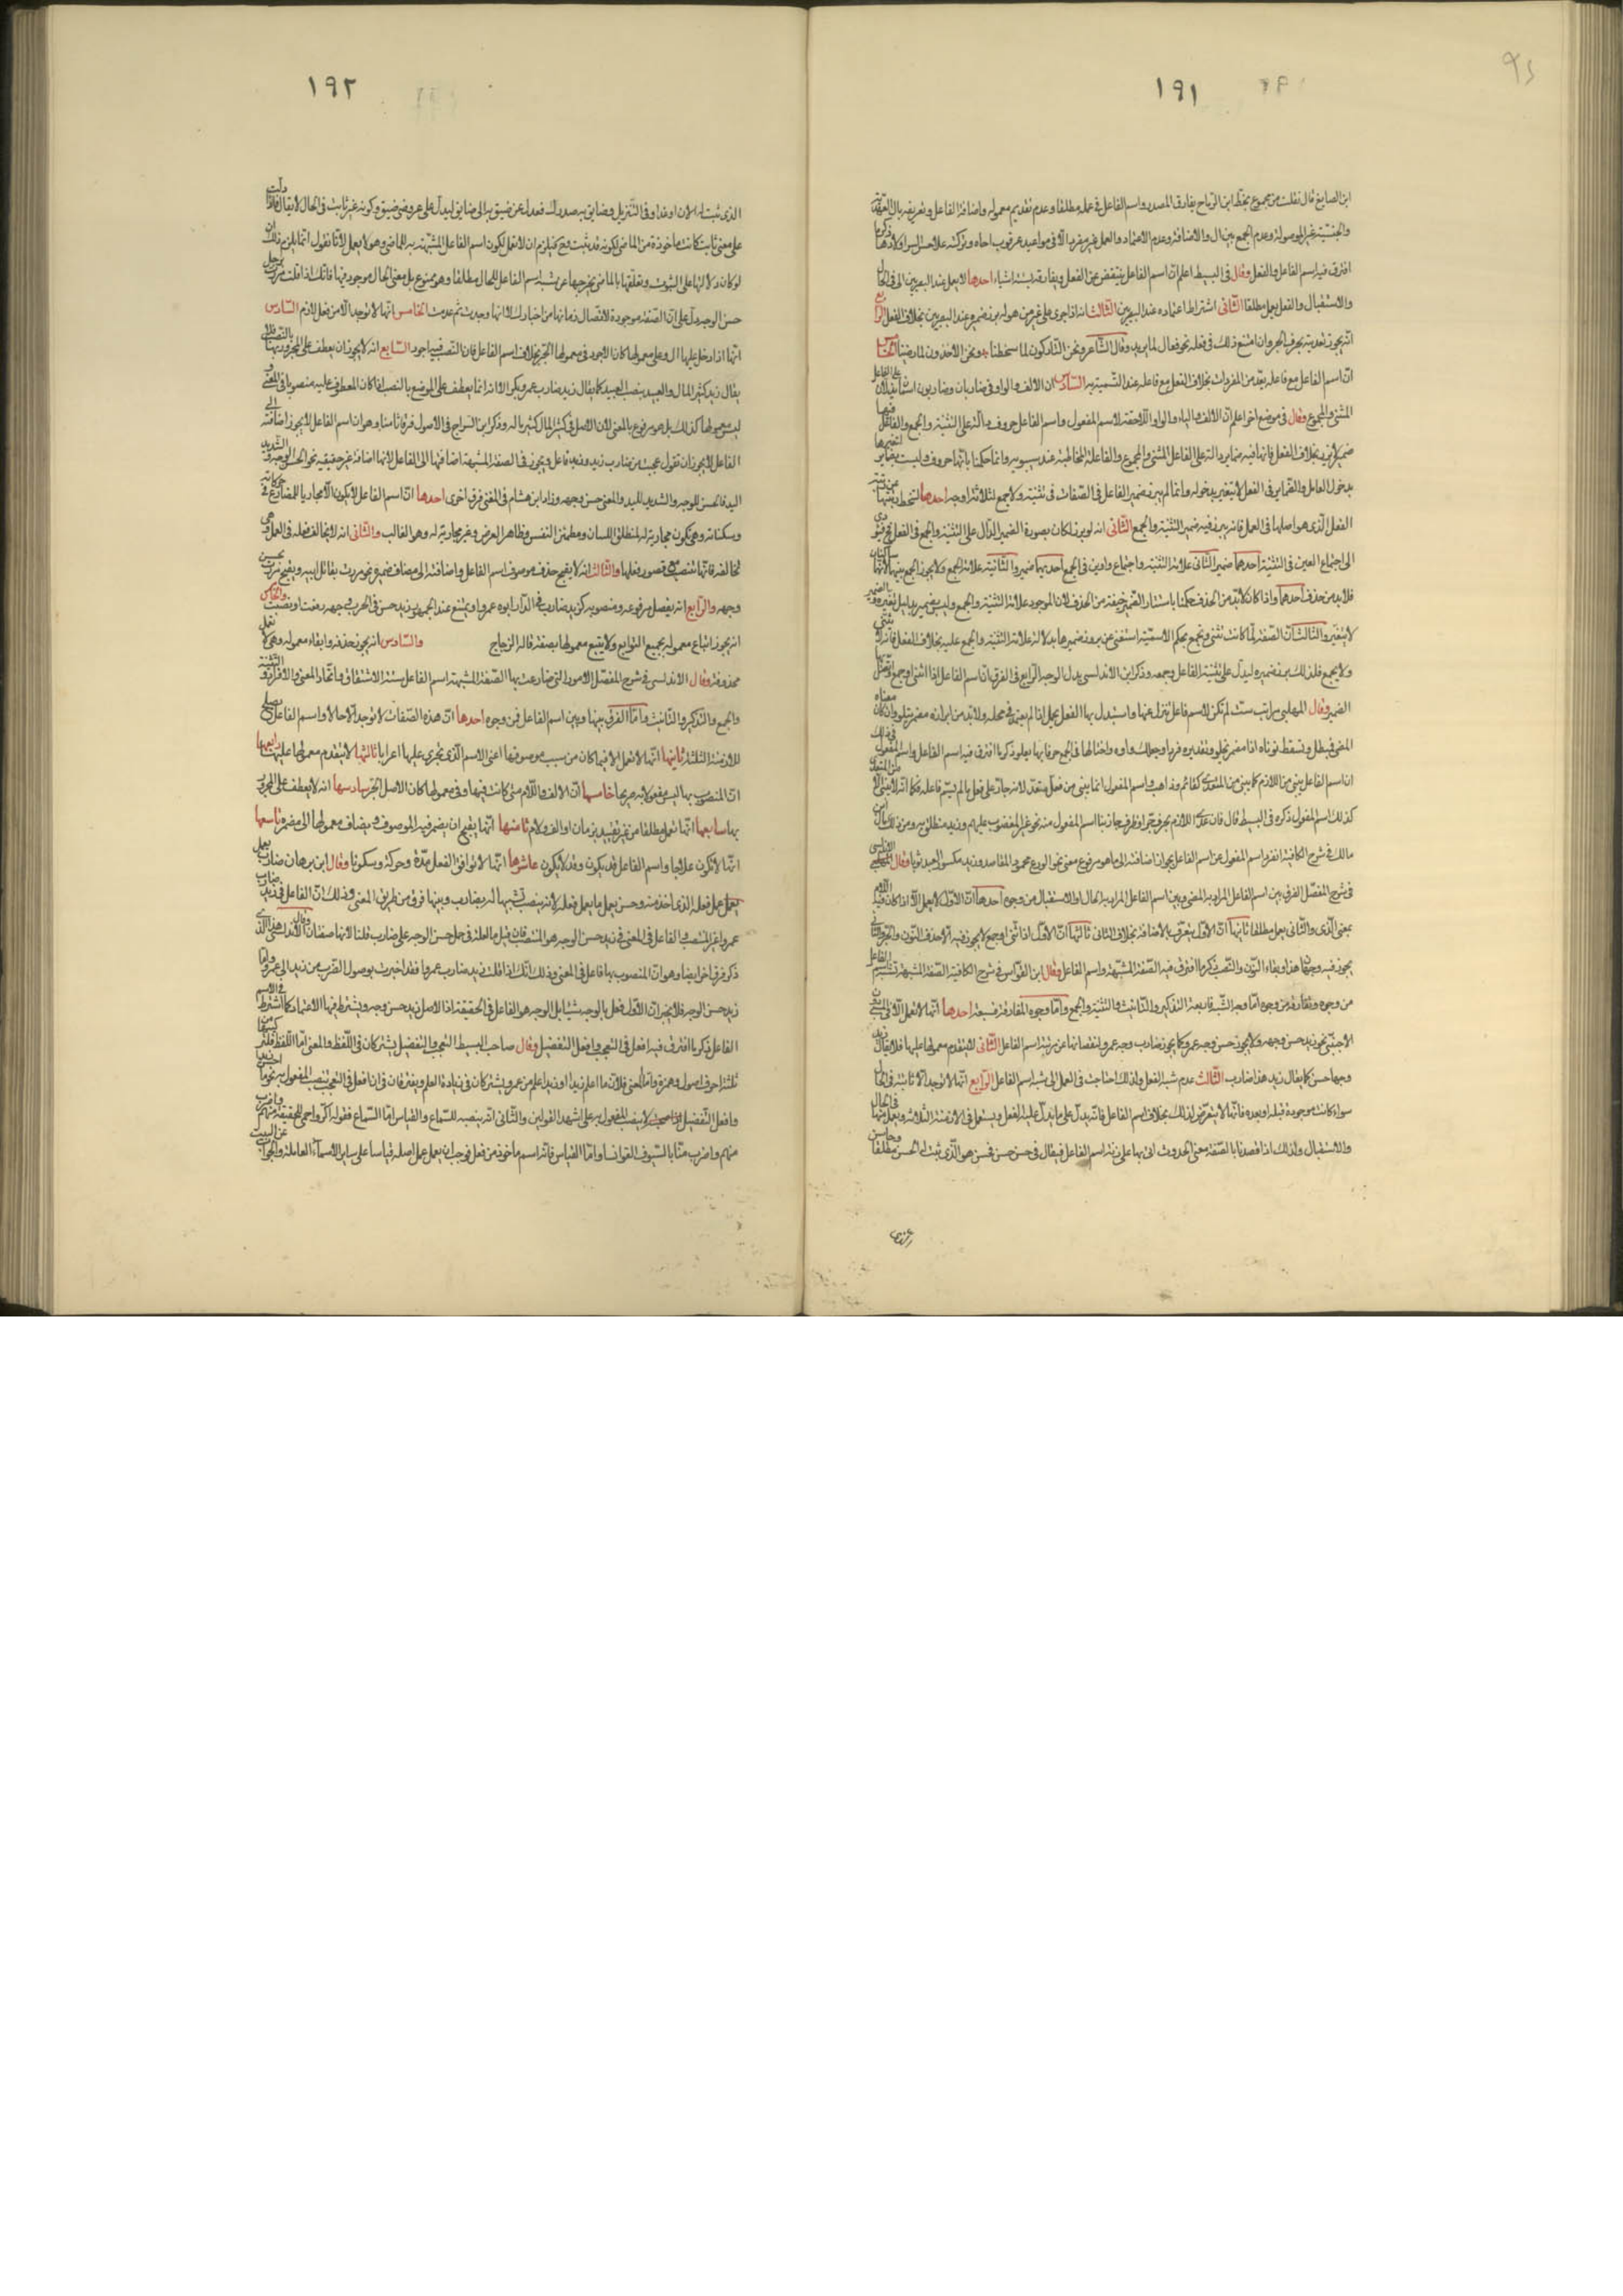 ١٩١
ابن الصايغ قال نقلت من مجموع بخط ابن الرماح يفارق المصدر واسم الفاعل في عمله مطلقا وعدم تقديم معموله واضافة الفاعل وتعريفه بال العهدية
والجنسية غير الموصولة وعدم الجمع بين ال والاضافة وعدم الاعتماد والعمل غير مفرد الا في مواعيد عرقوب اخاه وتركته
افترق فيه اسم الفاعل والفعل وقال في البسيط اعلم ان اسم الفاعل ينقص عن الفعل ويفارقه بستة اشياء احدها لا يعمل عند البصريين الا في الحال
والاستقبال والفعل يعمل مطلقا الثاني اشتراط اعتماده عند البصريين الثالث انه اذا جرى على غير من هو له برز ضميره عند البصريين بخلاف الفعل الرابع
انه يجوز تعديته بحرف الجر وان امتنع ذلك في فعله نحو فعال لما يريد وقال الشاعر ونحن التاركون لما سخطنا ونحن الاخذون لما رضينا الخامس
ان اسم الفاعل مع فاعله يعد من المفردات بخلاف الفعل مع فاعله عند التسمية به السادس ان الالف والواو في ضاربان وضاربون
المثنى والمجموع وقال في موضع اخر اعلم ان الالف والياء والواو اللاحقة لاسم المفعول واسم الفاعل حروف دالة على التثنية والجمع والفاعل فيها
ضمير لا يبرز بخلاف الفعل فانها فيه ضماير دالة على الفاعل المثنى والمجموع والفاعلة المخاطبة عند سيبويه وانما حكمنا بانها حروف وليست بضماير لتغيرها
بدخول العامل والضماير في الفعل لا يتغير بدخوله وانما لم يبرز ضمير الفاعل في الصفات في تثنية ولا جمع لثلاثة اوجه احدها لتنحط رتبتها عن رتبة
الفعل الذي هو اصلها في العمل فانه يبرز فيه ضمير التثنية والجمع الثاني انه لو برز لكان بصورة الضمير الدال على التثنية والجمع في الفعل فيؤدي
الى اجتماع الفين في التثنية احدهما ضمير الثاني علامة التثنية واجتماع واوين في الجمع احديهما ضمير والثانية علامة الجمع ولا يجوز الجمع بينهما لانهما ساكنان
فلا بد من حذف احدهما واذا كان لا بد من الحذف حكمنا باستتار الضمير خيفة من الحذف لان الموجود علامة التثنية والجمع وليس بضمير بدليل تغيره والضمير
لا يتغير والثالث ان الصفة لما كانت تثنى وتجمع بحكم الاسمية استغنى عن بروز ضميرها بدلالة علامة التثنية والجمع عليه بخلاف الفعل فانه لا يثنى
ولا يجمع فلذلك برز ضميره ليدل على تثنية الفاعل وجمعه وذكر ابن الاندلسي بدل الوجه الرابع في الفرق ان اسم الفاعل اذا اثنى او جمع
الضمير وقال المهلبي مراتب ست لم تكن لاسم فاعل تنزل عنها واستبدل بها الفعل
المعنى فيظل وتسقط نوناه اذا مضمر تجلو وتقديره فردا وجعلك واوه واخفا لها في الجمع حرفا بها يعلو ذكر ما افترق فيه اسم الفاعل واسم المفعول
ان اسم الفاعل يبنى من اللازم كما يبنى من المتعدي كقائم وذاهب واسم المفعول انما يبنى من فعل متعد لانه جار على فعل ما لم يسم فاعله فكما انه لا يبنى الا من المتعدي
كذلك اسم المفعول ذكره في البسيط قال فان عدي اللازم بحرف جر او ظرف جاز بنا اسم المفعول منه نحو غير المغضوب عليهم وزيد منطلق به ومن ذلك قال ابن
مالك في شرح الكافية انفرد اسم المفعول عن اسم الفاعل بجواز اضافته الى ما هو مرفوع معنى نحو الورع محمود المقاصد وزيد مكسو العبد ثوبا وقال الاندلسي
في شرح المفصل الفرق بين اسم الفاعل المراد به المضي وبين اسم الفاعل المراد به الحال والاستقبال من وجوه احدها ان الاول لا يعمل الا اذا كان فيه اللام
بمعنى الذي والثاني يعمل مطلقا ثانيها ان الاول يتعرف بالاضافة بخلاف الثاني ثالثها ان الاول اذا ثني او جمع لا يجوز فيه الا حذف النون والجر والثاني
يجوز فيه وجهان هذا وبقاء النون والنصب ذكر ما افترق فيه الصفة المشبهة واسم الفاعل وقال ابن القواس في شرح الكافية الصفة المشبهة تشبه اسم الفاعل
من وجوه وتفارقه من وجوه اما وجه الشبه فاربعة التذكير والتانيث والتثنية والجمع واما وجوه المفارقة فسبعة احدها انها لا تعمل الا في السببي دون
الاجنبي نحو زيد حسن وجهه ولا يجوز حسن وجه عمرو كما يجوز ضارب وجه عمرو لنقصانها عن رتبة اسم الفاعل الثاني لا يتقدم معمولها عليها فلا يقال زيد
وجها حسن كما يقال زيد هذا ضارب الثالث عدم شبه الفعل ولذلك احتاجت في العمل الى شبه اسم الفاعل الرابع انها لا توجد الا ثابتة في الحال
سواء كانت موجودة قبله او بعده فانها لا يتعرض لذلك بخلاف اسم الفاعل فانه يدل على ما يدل عليه الفعل ويستعمل في الازمنة الثلاثة ويعمل منها في الحال
والاستقبال ولذلك اذا قصدنا بالصفة معنى الحدوث اتى بها على زنة اسم الفاعل فيقال في حسن حسن هو الذي ثبت له الحسن مطلقا وحاسن
١٩٢
الذي ثبت له الان او غدا وفي التنزيل وضايق به صدرك فعدل عن ضيق الى ضايق ليدل على عروض ضيق وكونه غير ثابت في الحال لا يقال فاذا دلت
على معنى ثابت كانت ماخوذة من الماضي لكونه قد ثبت وح فيلزم ان لا تعمل لكون اسم الفاعل المشبهة به للماضي وهو لا يعمل لانا نقول انما يلزم ذلك ان
لو كان دلالتها على الثبوت وتعلقها بالماضي يخرجها عن شبه اسم الفاعل للحال مطلقا وهو ممنوع بل معنى الحال موجود فيها فانك اذا قلت مررت برجل
حسن الوجه دل على ان الصفة موجودة لاتصال زمانها من اخبارك لا انها وجدت ثم عدمت الخامس انها لا توجد الا من فعل لازم السادس
انها اذا دخل عليها ال وعلى معمولها كان الاجود في معمولها الجر بخلاف اسم الفاعل فان النصب فيه اجود السابع انه لا يجوز ان يعطف على المجرور بها بالنصب فلا
يقال زيد كثير المال والعبيد بنصب العبيد كما يقال زيد ضارب عمرو وبكرا لانه انما يعطف على الموضع بالنصب اذا كان المعطوف عليه منصوبا في المعنى و
ليس معمولها كذلك بل هو مرفوع بالمعنى لان الاصل في كثير المال كثير ماله وذكر ابن السراج في الاصول فرقا ثامنا وهو ان اسم الفاعل لا يجوز اضافته الى
الفاعل لا يجوز ان تقول عجبت من ضارب زيد وزيد فاعل ويجوز في الصفة المشبهة اضافتها الى الفاعل لانها اضافة غير حقيقية نحو الحسن الوجه والشديد
اليد فالحسن للوجه والشديد لليد والمعنى حسن وجهه وزاد ابن هشام في المغني فرق اخرى احدها ان اسم الفاعل لا يكون الا مجاريا للمضارع في حركاته
وسكناته وهي تكون مجارية له لمنطلق اللسان ومطمئن النفس وظاهر العرض وغير مجارية له وهو الغالب والثاني انه لا يخالف فعله في العمل وهي
تخالفه فانها تنصب مع قصور فعلها والثالث انه لا يقبح حذف موصوف اسم الفاعل واضافته الى مضاف ضميره نحو مررت بقاتل ابيه ويقبح مررت بحسن
وجهه والرابع انه يفصل مرفوعه ومنصوبه كزيد ضارب في الدار ابوه عمروا ويمتنع عند الجمهور زيد حسن في الحرب وجهه رفعت او نصبت والخامس
انه يجوز اتباع معموله بجميع التوابع ولا يتبع معمولها بصفة قاله الزجاج والسادس انه يجوز حذفه وابقاء معموله وهي لا تعمل
محذوفة وقال الاندلسي في شرح المفصل الامور التي ضارعت بها الصفة المشبهة اسم الفاعل ستة الاشتقاق واتحاد المعنى والافراد والتثنية
والجمع والتذكير والتانيث واما الفرق بينها وبين اسم الفاعل فمن وجوه احدها ان هذه الصفات لا توجد الا حالا واسم الفاعل يصلح
للازمنة الثلثة ثانيها انها لا تعمل الا فيما كان من سبب موصوفها اعني الاسم الذي تجري عليه اعرابا ثالثها لا يتقدم معمولها عليها رابعها
ان المنصوب بها ليس مفعولا به صريحا خامسها ان الالف واللام متى كانت فيها وفي معمولها كان الاصل الجر سادسها انه لا يعطف على المجرور
بها سابعها انها تعمل مطلقا من غير تقييد بزمان او الف ولام ثامنها انها يقبح ان يضمر فيها الموصوف ويضاف معمولها الى مضمره تاسعها
انها لا تكون علاجا واسم الفاعل قد يكون وقد لا يكون عاشرها انها لا توافق الفعل عدة وحركة وسكونا وقال ابن برهان ضارب يعمل
عمل فعله الذي اخذ منه وحسن يعمل ما يعمل فعله لانه ينصب تشبيها له بضارب وبينهما فرق من طريق المعنى وذلك ان الفاعل في زيد ضارب
عمروا غير المنتصب والفاعل في المعنى في زيد حسن الوجه هو المنتصب فان قيل ما العلة في حمل حسن الوجه على ضارب قلنا لانهما صفتان وقال الاندلسي هذا الذي
ذكر فرق اخر ايضا وهو ان المنصوب بها فاعل في المعنى وذلك انك اذا قلت زيد ضارب عمروا فقد اخبرت بوصول الضرب من زيد الى عمرو واما
زيد حسن الوجه فلا يخبر ان الاول فعل بالوجه شيئا بل الوجه هو الفاعل في الحقيقة اذ الاصل زيد حسن وجهه ويشترط فيها الاعتماد كما اشترط في الاسم
الفاعل ذكر ما افترق فيه افعل في التعجب وافعل التفضيل وقال صاحب البسيط التعجب والتفضيل يشتركان في اللفظ والمعنى اما اللفظ فلتركبهما من
ثلثة احرف اصول وهمزة واما المعنى فلان ما اعلم زيدا وزيد اعلم من عمرو يشتركان في زيادة العلم ويفترقان في ان افعل في التعجب ينصب المفعول به نحو ما احسن زيدا
وافعل التفضيل لا ينصب المفعول به على اشهر القولين والثاني انه ينصبه للسماع والقياس اما السماع فقوله اكر واحمى للحقيقة منهم واضرب
منهم واضرب منا بالسيوف القوانسا واما القياس فانه اسم ماخوذ من فعل فوجب ان يعمل عمل اصله قياسا على ساير الاسماء العاملة والجواب عن البيت